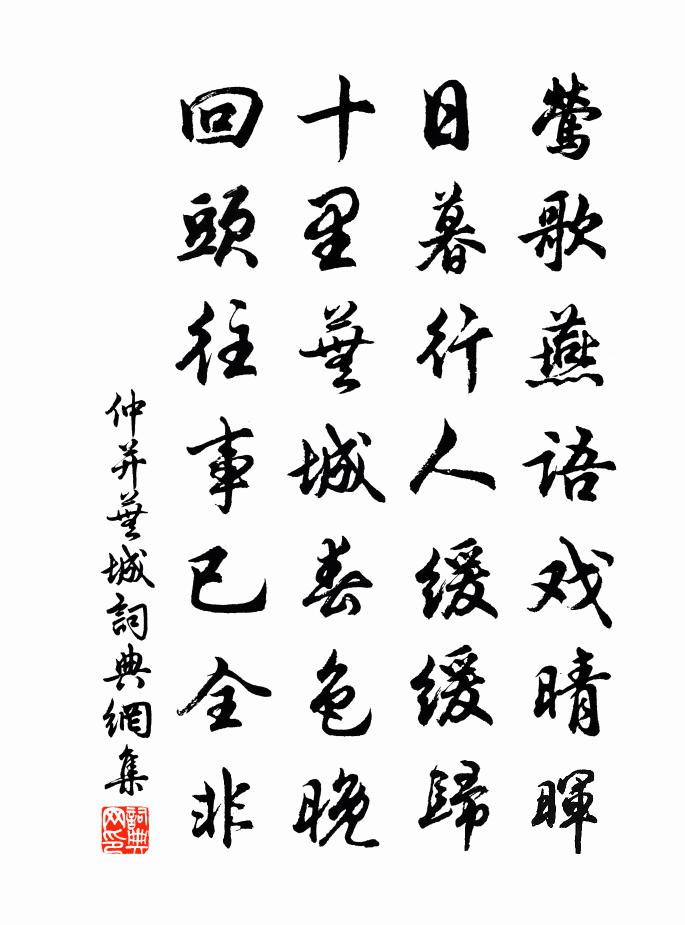 鶯歌燕語戏晴暉
日暮行人緩緩歸
十里蕪城春色晚
回頭往事已全非
仲并蕪城詞典網集
詞典網印